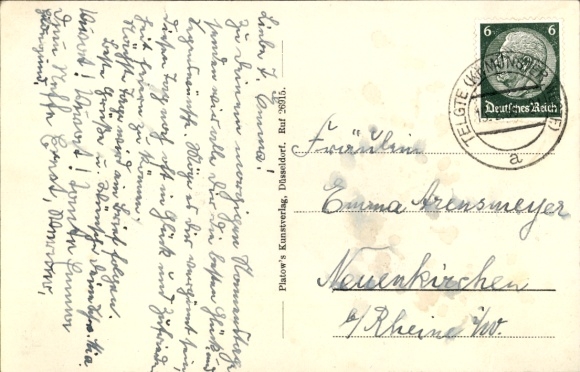 Liebe T. Emma!
Zu Deinem morgigen Namenstage
senden wir alle Dir die besten Glück- und
Segenswünsche. Möge es Dir vergönnt sein,
diesen Tag noch oft in Glück und Zufrieden-
heit feiern zu können.
Nächste Tage wird ein Brief folgen.
Beste Grüße u. Wünsche
Dein Neffe Ernst,
Platow's Kunstverlag, Düsseldorf. Ruf 26915.
6 6
Deutsches Reich
TELGTE (KR MÜNSTER
a
Fräulein
Emma Arensmeyer
Neuenkirchen
b/Rheine i/W.